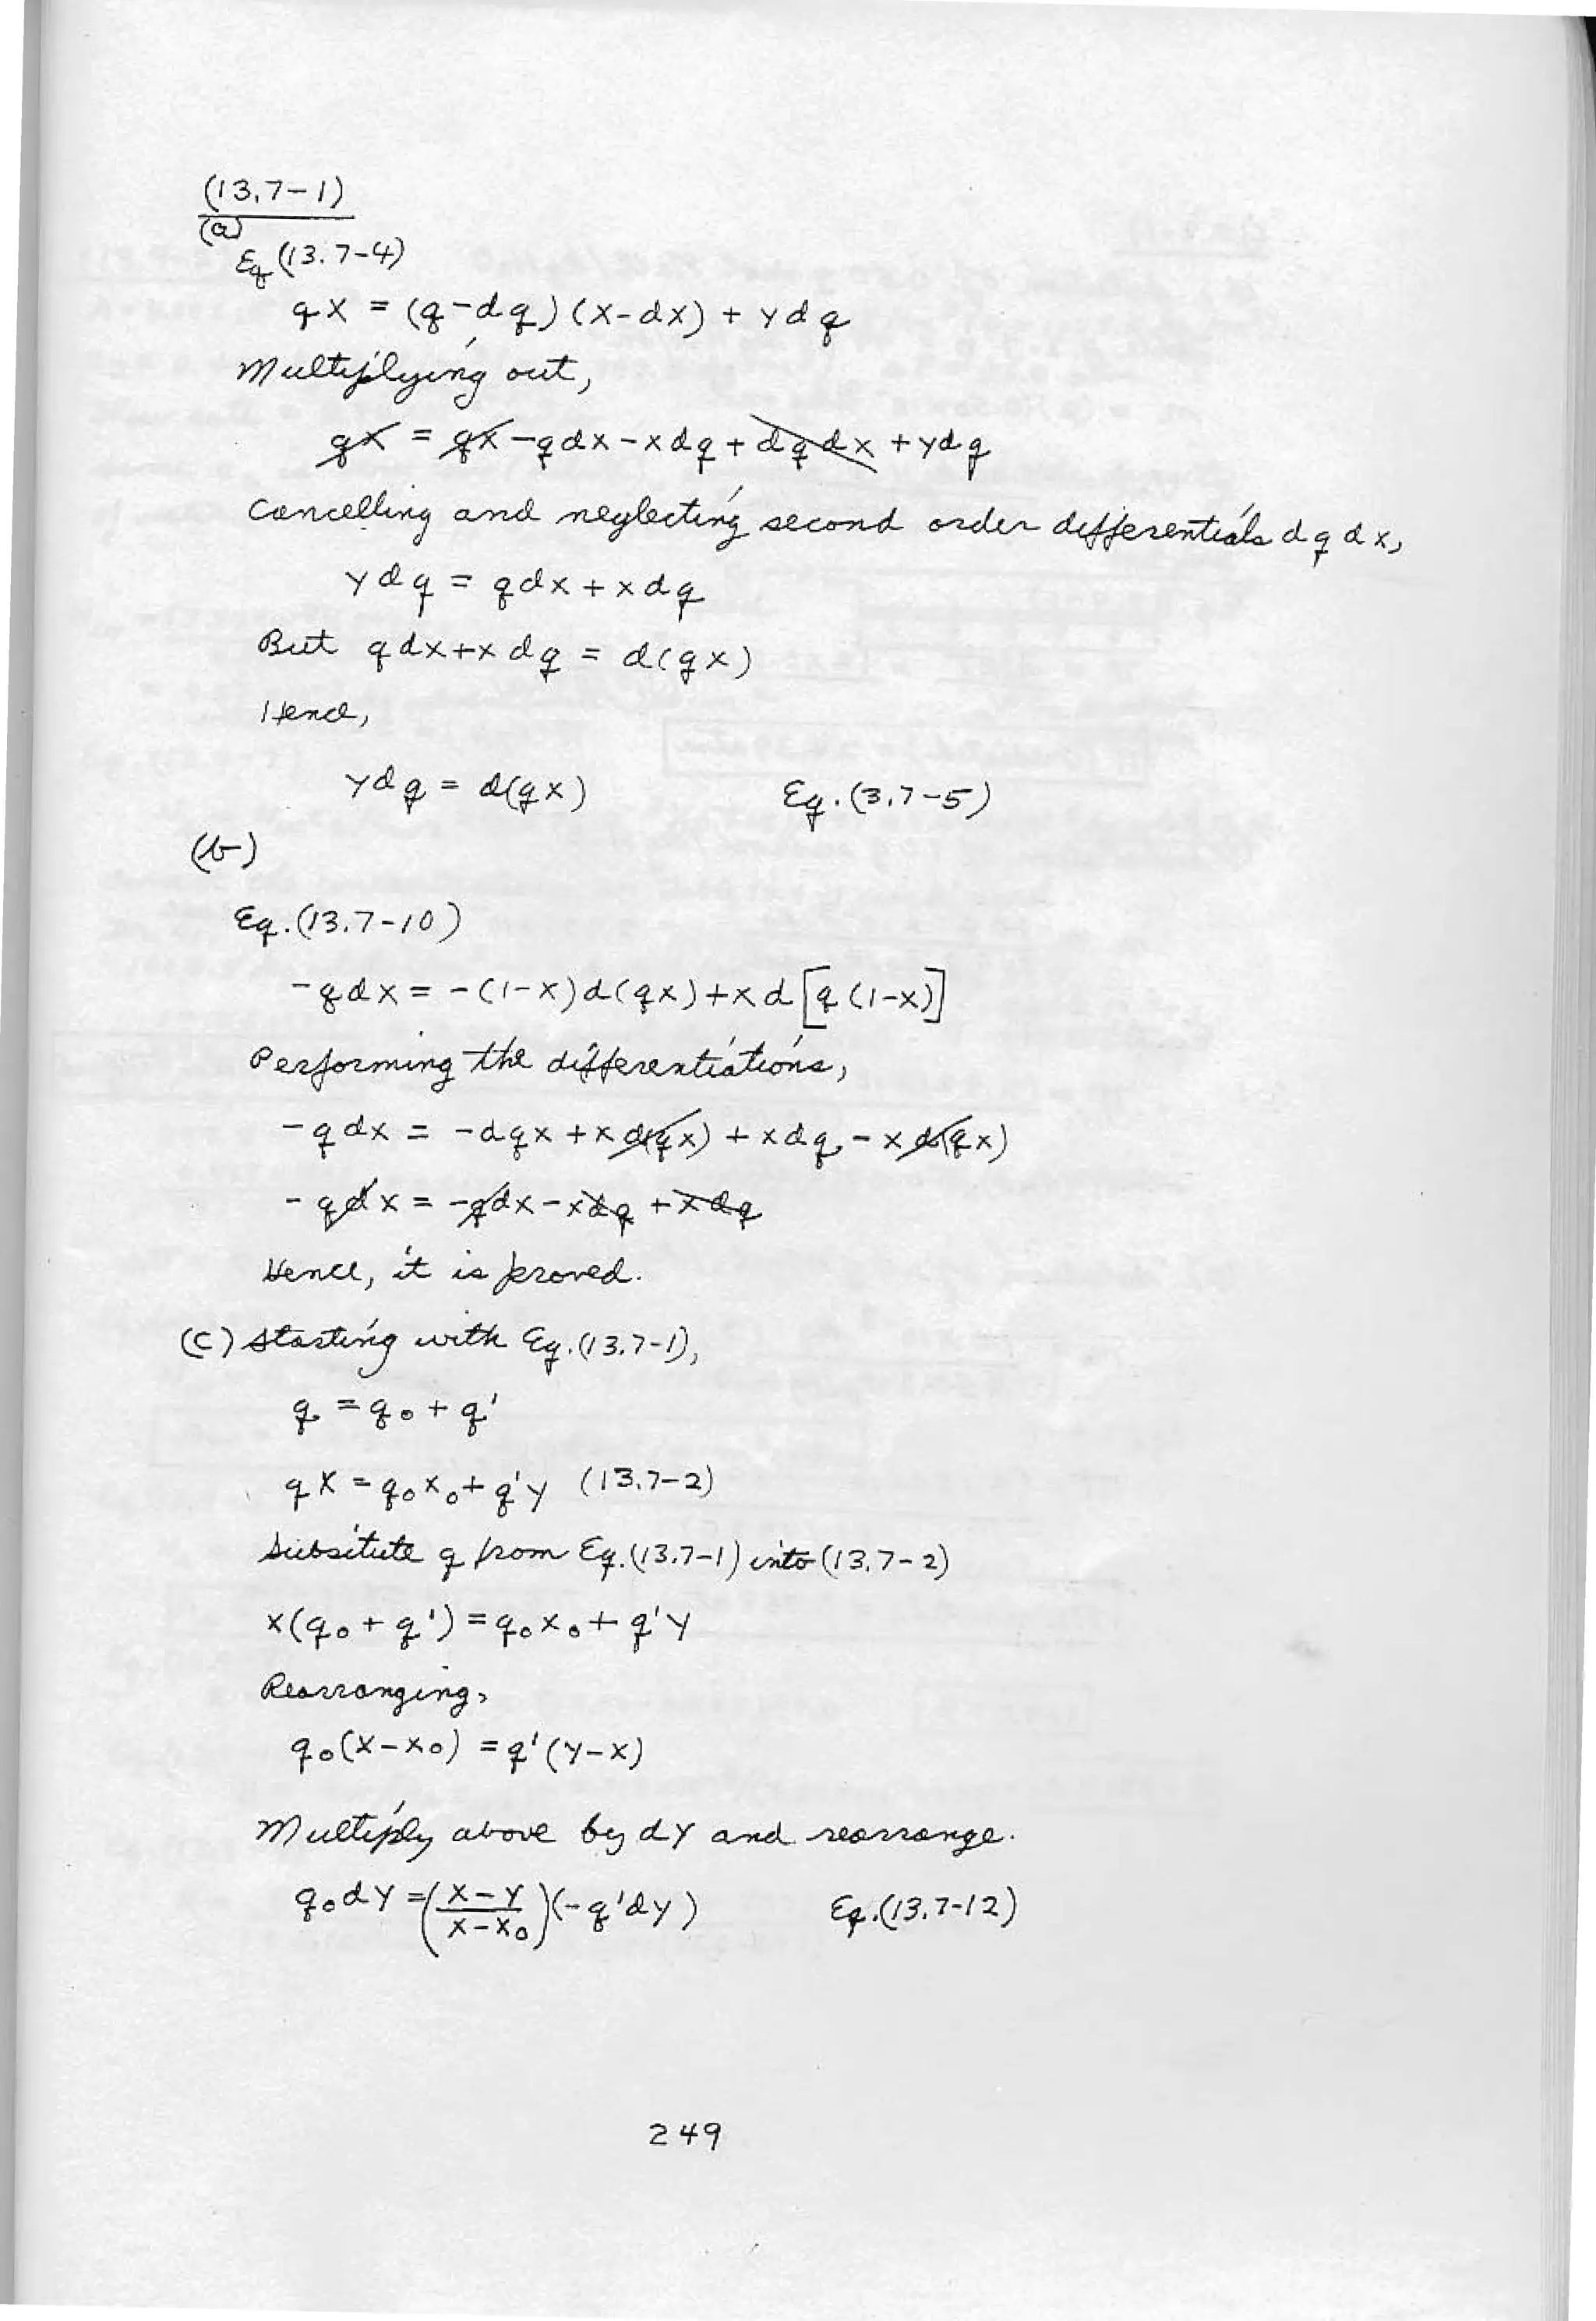 (13.7-1)
(a)
Eq (13.7-4)
qx = (q-dq)(x-dx) + ydq
Multiplying out,
qx = qx - qdx - xdq + dqdx + ydq
Cancelling and neglecting second order differentials dqdx,
ydq = qdx + xdq
But qdx+xdq = d(qx)
Hence,
ydq = d(qx) Eq. (3.7-5)
(b)
Eq. (13.7-10)
-qdx = -(1-x)d(qx)+xd[q(1-x)]
Performing the differentiations,
-qdx = -dqx + xd(qx) + xdq - xd(qx)
-qdx = -qdx - xdq + xdq
Hence, it is proved.
(c) Starting with Eq. (13.7-1),
q = q₀ + q'
qx = q₀x₀ + q'y (13.7-2)
Subsitute q from Eq. (13.7-1) into (13.7-2)
x(q₀ + q') = q₀x₀ + q'y
Rearranging,
q₀(x-x₀) = q'(y-x)
Multiply above by dy and rearrange.
q₀dy = (x-y / x-x₀)(-q'dy) Eq. (13.7-12)
249